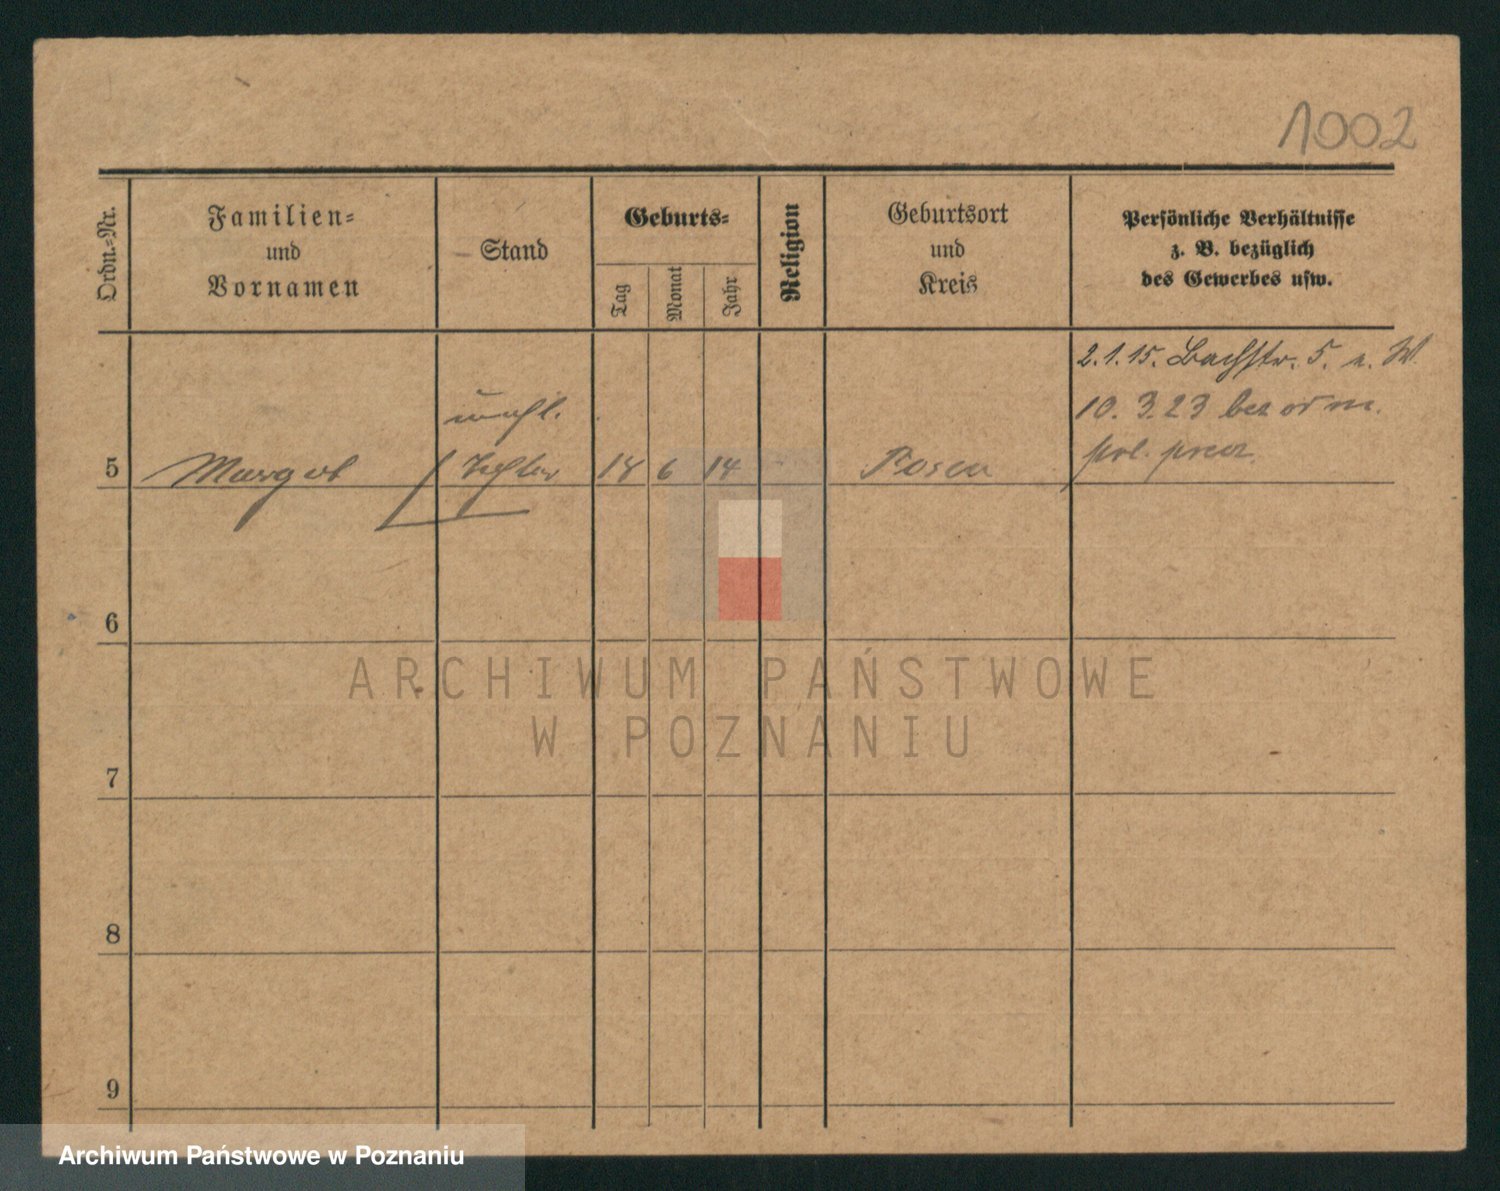 1002
Ordn.-Nr.
Familien-
und
Vornamen
Stand
Geburts-
Tag
Monat
Jahr
Religion
Geburtsort
und
Kreis
Persönliche Verhältnisse
z. B. bezüglich
des Gewerbes usw.
2.1.15. Bachstr. 5.
10.3.23
unehl.
5 Margot Tochter 14 6 14 Posen
6
ARCHIWUM PAŃSTWOWE
W POZNANIU
7
8
9
Archiwum Państwowe w Poznaniu